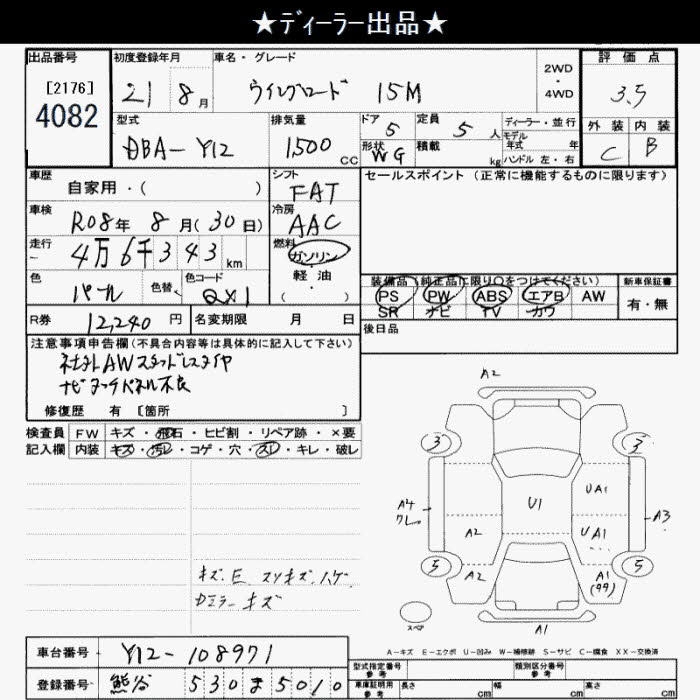 ★ディーラー出品★
出品番号 初度登録年月 車名・グレード 2WD・4WD 評価点
[2176] 4082 21 8月 ウイングロード 15M 3.5
型式 排気量 ドア 定員 ディーラー・並行 外装 内装
DBA-Y12 1500 CC 5 5人 モデル年式 年 C B
形状 WG 積載 kg ハンドル 左・右
車歴 自家用・( ) シフト FAT セールスポイント (正常に機能するものに限ります)
車検 R08年 8月(30日) 冷房 AAC
走行 4万6千343km 燃料 ガソリン・軽油・( )
色 パール 色替 色コード QX1
装備品(純正品に限り○をつけてください) 新車保証書
PS PW ABS エアB AW 有・無
SR ナビ TV カワ
R券 12,240円 名変期限 月 日 後日品
注意事項申告欄(不具合内容等は具体的に記入して下さい)
社外AWスタッドレスタイヤ
ナビタッチパネル不良
修復歴 有 [箇所 ]
検査員 FW キズ・飛石・ヒビ割・リペア跡・×要
記入欄 内装 キズ・汚レ・コゲ・穴・スレ・キレ・破レ
A2
3 3
A4 クレ U1 UA1 A3
A2 UA1
5 A2 A1 (99) 5
スペア A1
キズ.E スリキズ.ハゲ
Dミラーキズ
A-キズ E-エクボ U-凹み W-補修跡 S-サビ C-腐食 XX-交換済
車台番号 Y12-108971 型式指定番号 参考 類別区分番号 参考
登録番号 熊谷 530ま5010 車庫証明用 参考 長さ cm 幅 cm 高さ cm